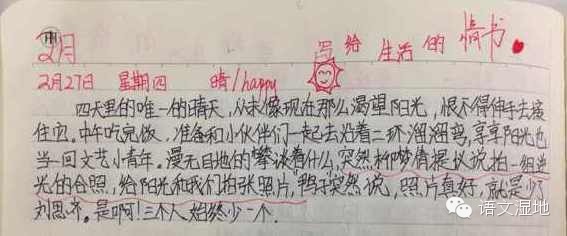 2月
写给生活的情书
2月27日 星期四 晴/happy
四天里的唯一的晴天，从未像现在那么渴望阳光，恨不得伸手去接
住它。中午吃完饭，准备和小伙伴们一起去沿着二环溜溜弯，享享阳光也
当一回文艺小青年。漫无目地的攀谈着什么，突然柳梦倩提议说拍一组逆
光的合照，给阳光和我们拍张照片，"鸭子突然说，照片真好，就是少了
刘思齐。是啊！三个人始终少一个.
语文湿地